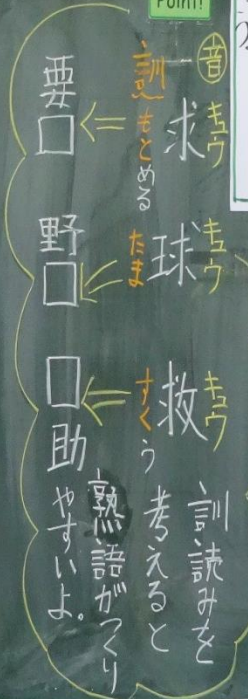 Point!
音
キュウ
求
訓もとめる
要□
キュウ
球
たま
野□
キュウ
救
すくう
□助
訓読みを
考えると
熟語がつくり
やすいよ。